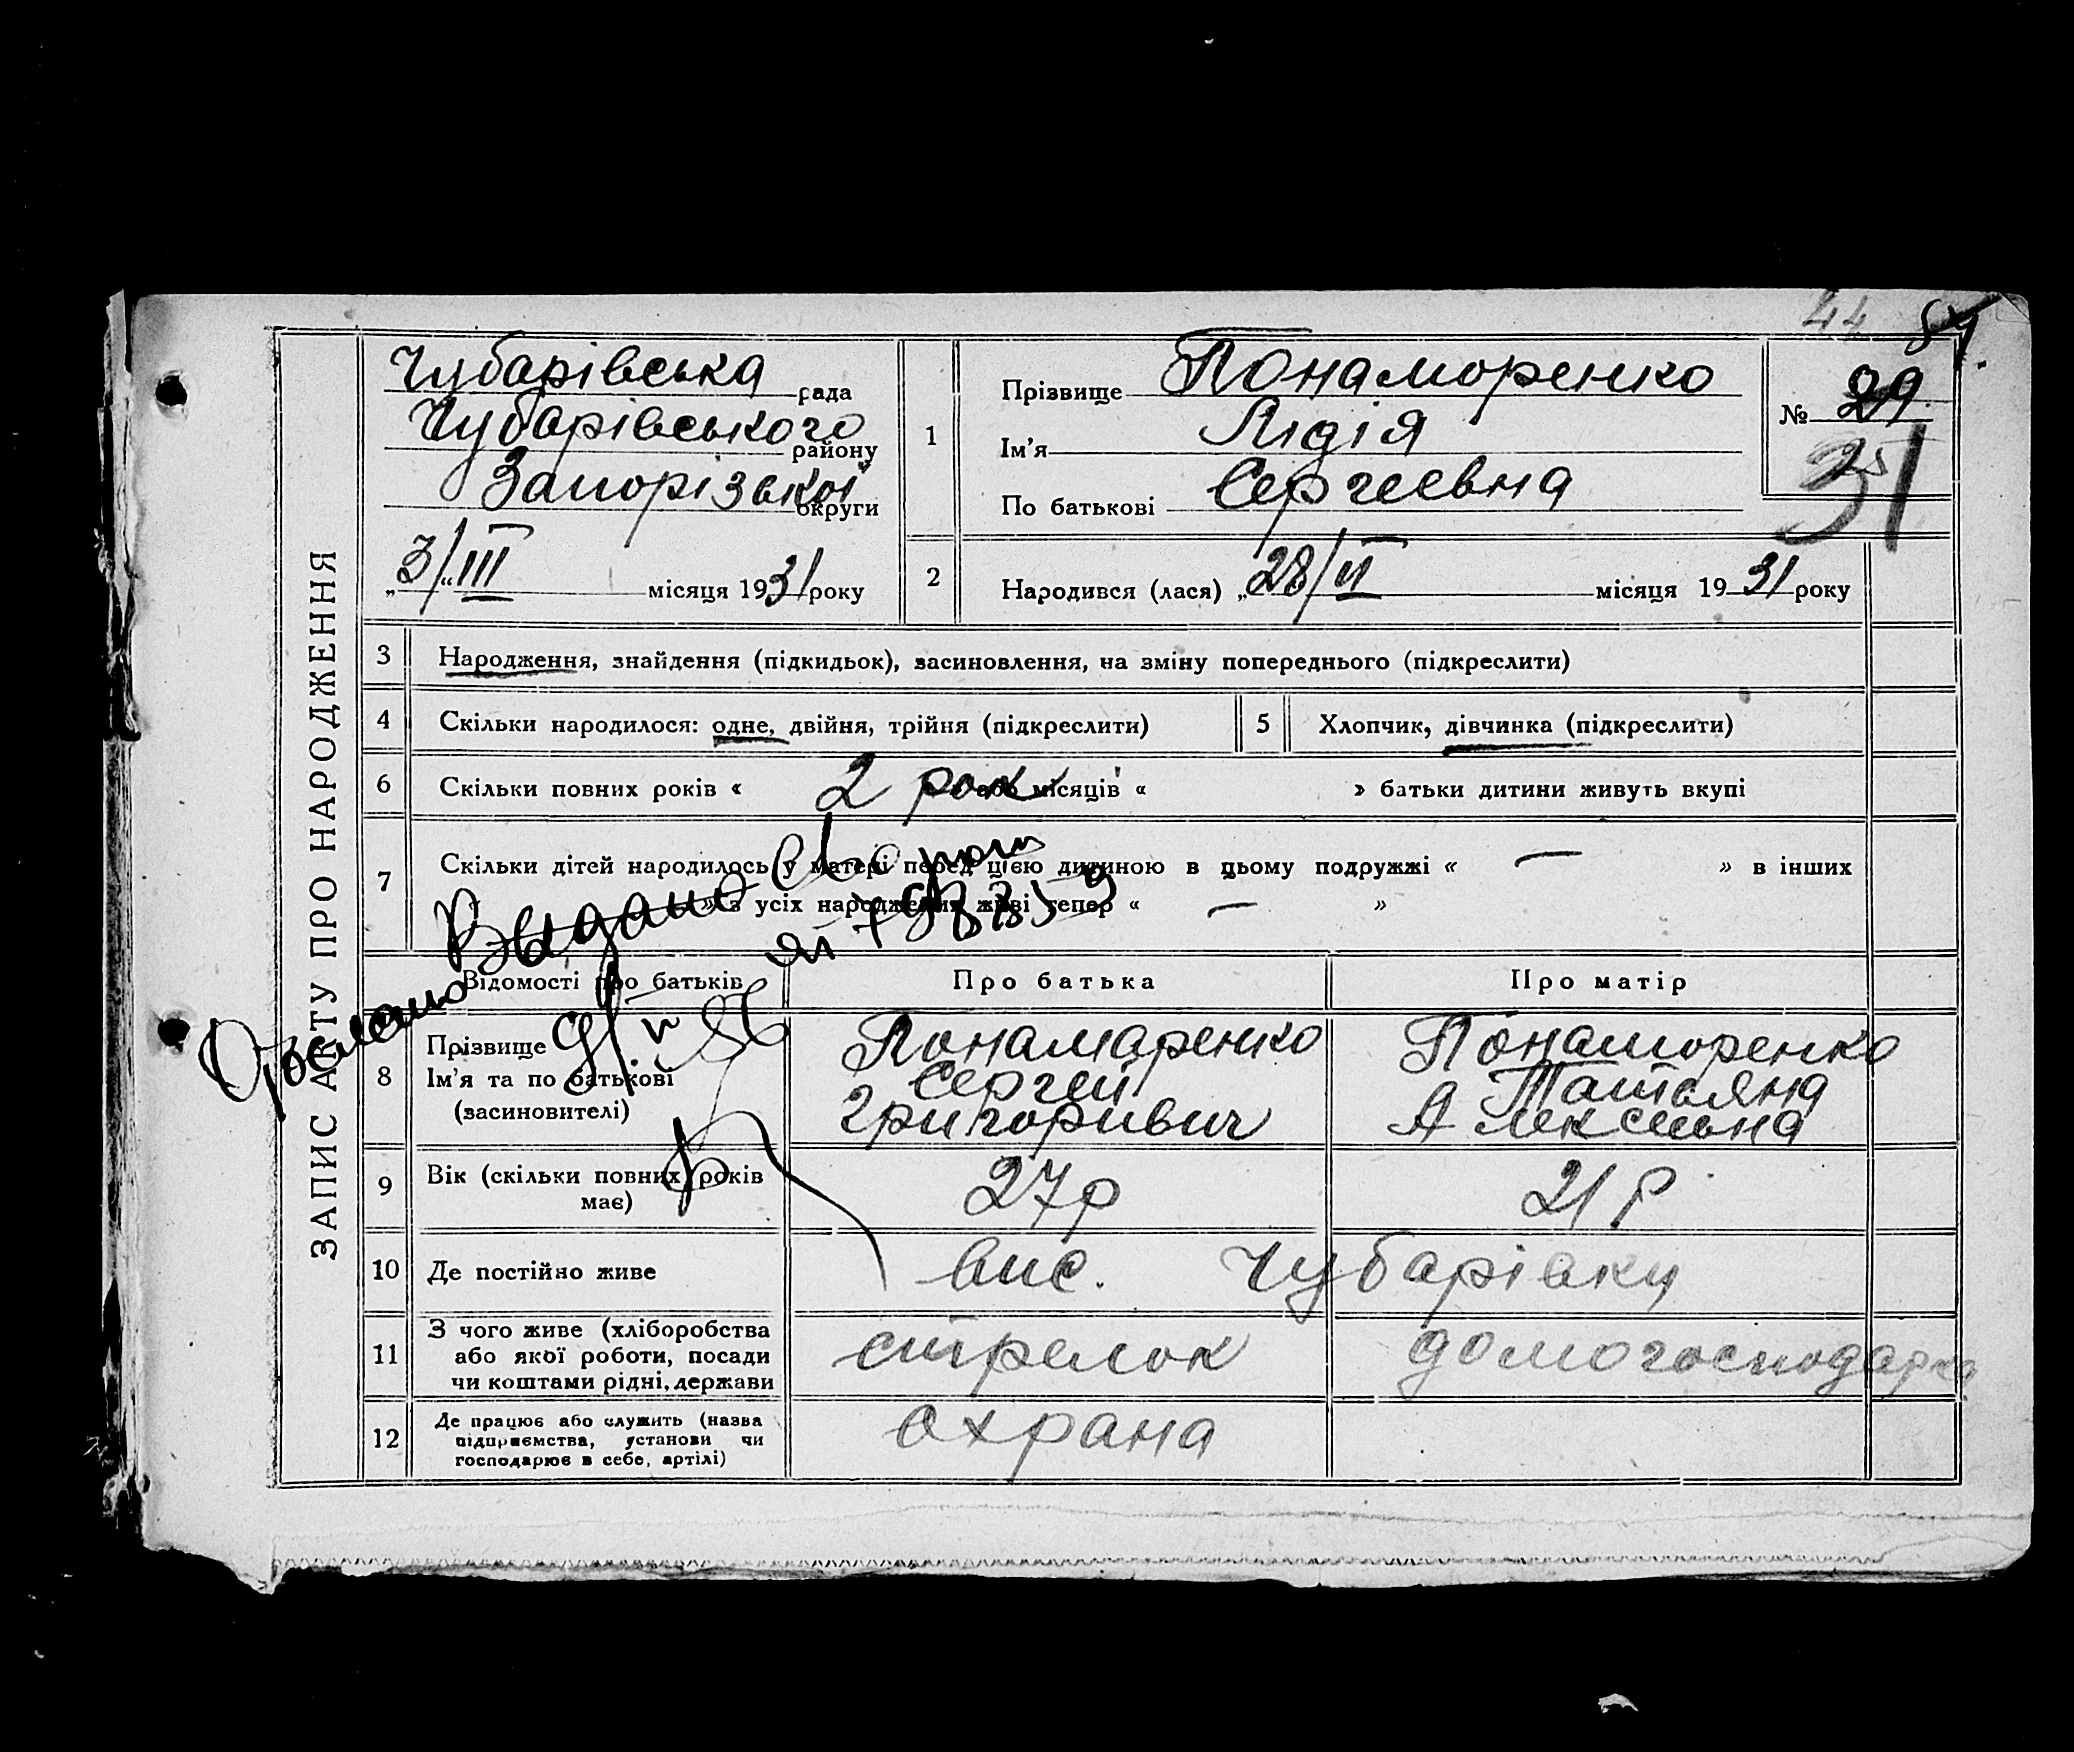 44 87.
ЗАПИС АКТУ ПРО НАРОДЖЕННЯ
Чубарівська рада
Чубарівського району
Запорізької округи
„3/„III місяця 1931 року
1
Прізвище Понаморенко
Ім’я Лідія
По батькові Сергеевна
№ 29
31
2 Народився (лася) „28/VI місяця 1931 року
3 Народження, знайдення (підкидьок), засиновлення, на зміну попереднього (підкреслити)
4 Скільки народилося: одне, двійня, трійня (підкреслити) 5 Хлопчик, дівчинка (підкреслити)
6 Скільки повних років « 2 рок або місяців « » батьки дитини живуть вкупі
7 Скільки дітей народилось у матері перед цією дитиною в цьому подружжі « — » в інших
« » з усіх народжених живі тепер « — »
Выдано
Відомості про батьків Про батька Про матір
8 Прізвище
Ім’я та по батькові
(засиновителі)
Понамаренко
Сергей
Григоривич
Понаморенко
Татьяна
Алексеевна
9 Вік (скільки повних років має) 27р 21 р
10 Де постійно живе вис. Чубарівку
11 З чого живе (хліборобства
або якої роботи, посади
чи коштами рідні, держави
стрелок домогосподарка
12 Де працює або служить (назва
підприємства, установи чи
господарює в себе, артілі)
охрана